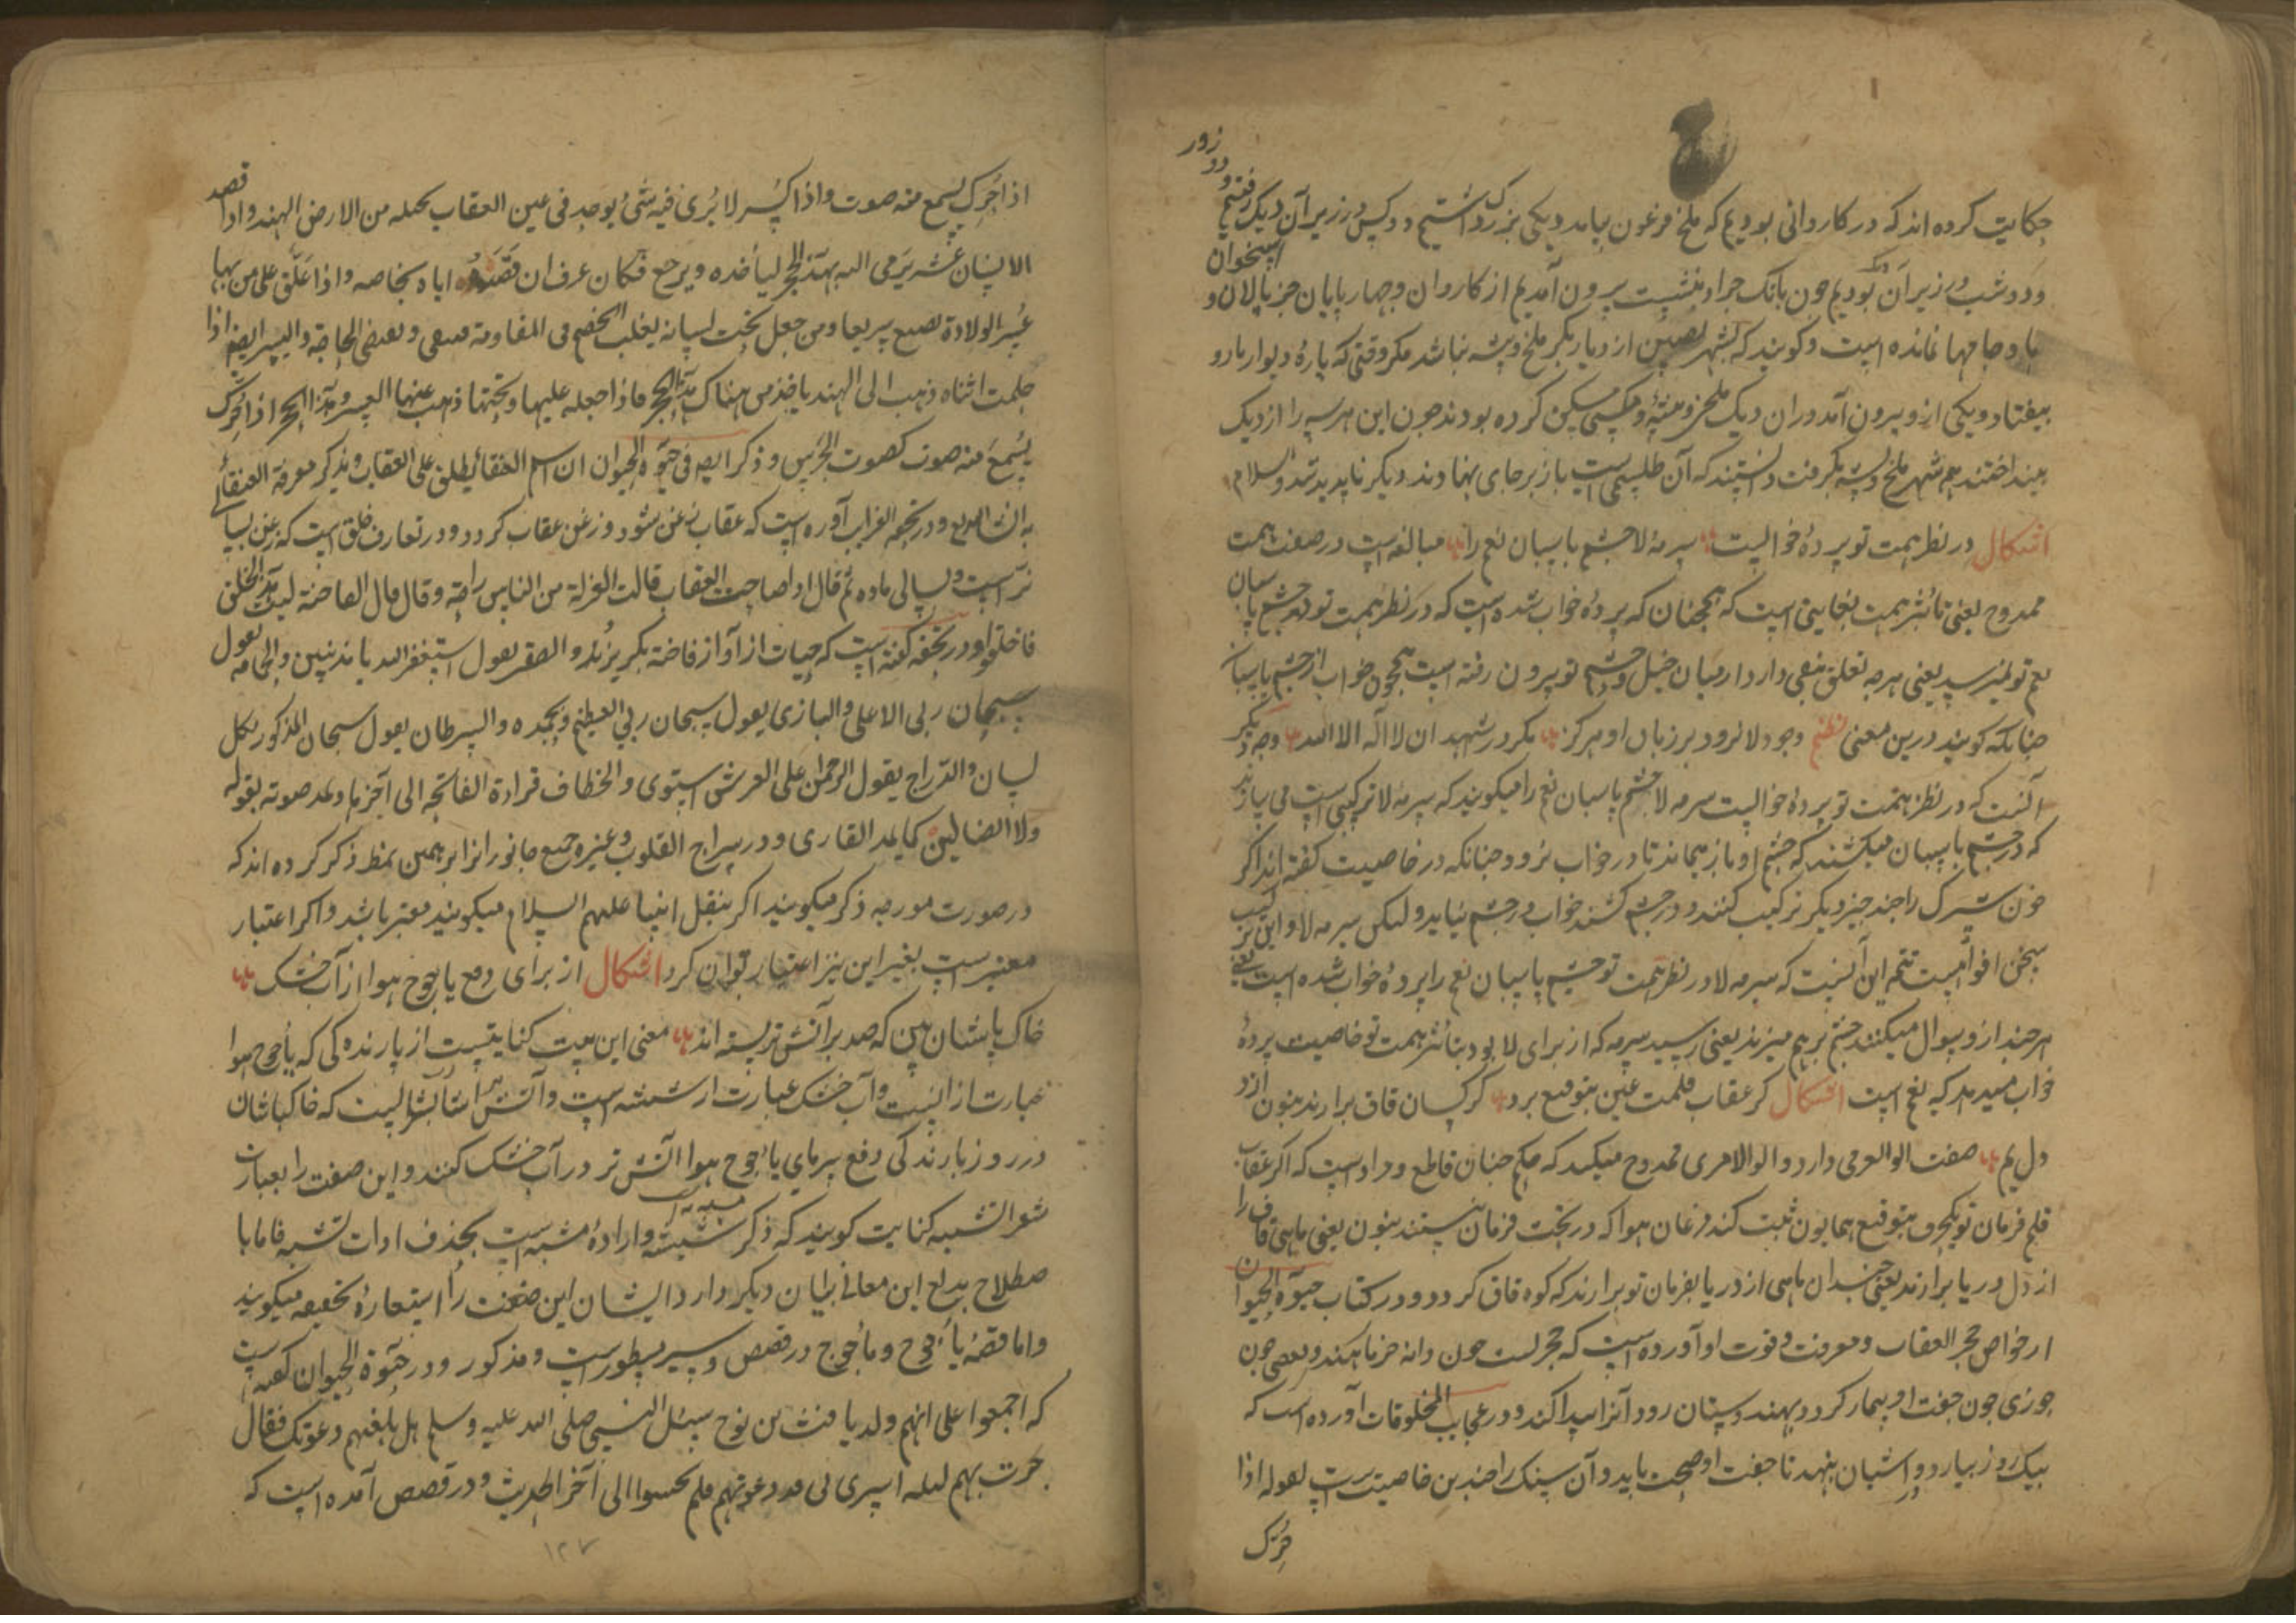 حکایت کرده اند که در کاروانی بودیم که ملخ فرعون بیامد دیکی بزرک داشتیم دو کس در زیر آن دیک رفتیم و دو روز
و دو شب در زیر آن دیک بودیم جون بانک جراد بنشست بیرون آمدیم از کاروان و جهار پایان جز پالان و استخوان
با و جامها نمانده است و کویند که بشهر نصیبین از دیار بکر ملخ و پشه نباشد مکر وقتی که پارهٔ دیوار بارو
بیفتاد و دیکی ازو بیرون آمد در ان دیک ملخی و پشهٔ و مکسی مسکن کرده بودند جون این هر سه را از دیک
بینداختند همه شهر ملخ و پشه بکرفت دانستند که آن طلسمی است باز بر جای نهادند دیکر ناپدید شد والسلام
اشکال در نظر همت تو پردهٔ خوابیست سرمهٔ لا جشم پاسبان نعم را مبالغه است در صفت همت
ممدوح یعنی تأثیر همت بغایتی است که همجنان که پردهٔ خواب شده است که در نظر همت تو در جشم پاسبان
نعم تو نمیرسد یعنی هر جه تعلق بنفی دارد از میان خیل و حشم تو بیرون رفته است همجون خواب از جشم پاسبان
جنانکه کویند درین معنی نظم وجود لا نرود بر زبان او هرکز مکر در اشهد ان لا اله الا الله وجه دیکر
آنست که در نظر همت تو پردهٔ خوابیست سرمه لا جشم پاسبان نعم را میکویند که سرمهٔ لا ترکیبی است می سازند
که در جشم پاسبان میکشند که جشم او باز بماند تا در خواب نرود جنانکه در خاصیت کفته اند اکر
خون شبرک را جند جیز دیکر ترکیب کنند و در جشم کشند خواب در جشم نیاید و لیکن سرمه لا و این ترکیب
سخن افواهست تتمه این آنست که سرمه لا در نظر همت تو جشم پاسبان نعم را پردهٔ خواب شده است یعنی
هر جند ازو سوال میکنند جشم بر هم میزند یعنی رسید سرمه که از برای لا بود بتأثیر همت تو خاصیت پردهٔ
خواب میدهد که نعم است اشکال کر عقاب قلمت عین بتوقیع برد کرکسان قاف برارند بنون از
دل یم صفت الوالعرمی دارد و الوالامری ممدوح میکند که حکم جنان قاطع و مراد است که اکر عقاب
قلم فرمان تو یکحرف بتوقیع همایون ثبت کند مرغان هوا که در تحت فرمان تستند بنون یعنی ماهی قاف را
از دل دریا برارند یعنی جندان ماهی از دریا بفرمان تو برارند که کوه قاف کردد و در کتاب حیوٰة الحیوان
از خواص حجر العقاب و معرفت و قوت او آورده است که حجریست جون دانهٔ خرما هندی و بعضی جون
جوزی جون جفت او بیمار کردد بهندوستان رود آنرا پیدا کند و در عجایب المخلوقات آورده است که
بیک روز بیارد و در آشیان بنهد تا جفت او صحت یابد و آن سنک را جندین خاصیت است لقوله اذا
حُرّک
اذا حُرک یسمع منه صوت و اذا کسر لا یُری فیه شئ یوجد فی عین العقاب یحمله من الارض الهند و اذا قصد
الانسان عشه یَرمی الیه بهذا الحجر لیأخذه و یرجع فکان عرف ان قصده ایاه بخاصه و اذا عَلّق علی من بها
عُسر الولادة تضع سریعا و من جعل تحت لسانه یغلب الخصم فی المقاومة و تقضی الحاجة
حلمت انثاه ذهب الی الهند یاخذ من هناک هذا الحجر فاذا جعله علیها و تحتها ذهب عنها العسر و هذا الحجر اذا حُرک
یُسمَع منه صوت کصوت الجَرَس و ذکر ایضا فی حیوٰة الحیوان ان اسم العنقاء یطلق علی العقاب و یذکر معرفة العنقاء
و در تحفه الغرایب آورده است که عقاب زغن شود و زغن عقاب کردد و در تعارف خلق است که زغن سالی
نرست و سالی ماده ثم قال اذا صاحت العقاب قالت العزلة من الناس راحة و قال قال الفاختة لیت هذا الخلق
ما خلقوا و در تحفه کفته است که حیات از آواز فاخته بکریزند و الصقر یقول استغفر الله یا مذنبین و الحمامه یقول
سبحان ربی الاعلی و البازی یقول سبحان ربی العظیم و بحمده و السرطان یقول سبحان المذکور بکل
لسان و الدراج یقول الرحمن علی العرش استوی و الخطاف قرادة الفاتحه الی آخرها و یمد صوته بقوله
ولا الضالین کما یمد القاری و در سراج القلوب و غیره جمیع جانورانرا برهمین نمط ذکر کرده اند که
در صورت مورجه ذکر میکویند اکر بنقل انبیا علیهم السلام میکویند معتبر باشد و اکر اعتبار
معتبرست بغیر این نیز اعتبار توان کرد اشکال از برای دفع یاجوج هوا از آب خشک
خاک پاشان بین که صد بر آتش تر بسته اند معنی این بیت کنایتیست از بارندکی که یأجوج هوا
عبارت از آنست و آب خشک عبارت از شیشه است و آتش تر شرابست که خاکپاشان
در روز بارندکی دفع سرمای یأجوج هوا آتش تر در آب خشک کنند و این صفت را بعبارت
شعر التشبیه کنایت کویند که ذکر مشبه به شیشه و ارادهٔ مشبه است بحذف ادات تشبیه فاما با
صطلاح بدایع این معانی بیان دیکر دارد ایشان این صنعت را استعارهٔ تحقیقیه میکویند
و اما قصهٔ یأجوج و مأجوج در قصص و سیر مسطورست و مذکور و در حیوٰة الحیوان کفته است
که اجمعوا علی انهم ولد یافث بن نوح سئل النبی صلی الله علیه و سلم هل بلغتهم دعوتک فقال
جزت بهم لیله اسری بی فدعوتهم فلم یجیبوا الی آخر الحدیث و در قصص آمده است که
۱۲۷